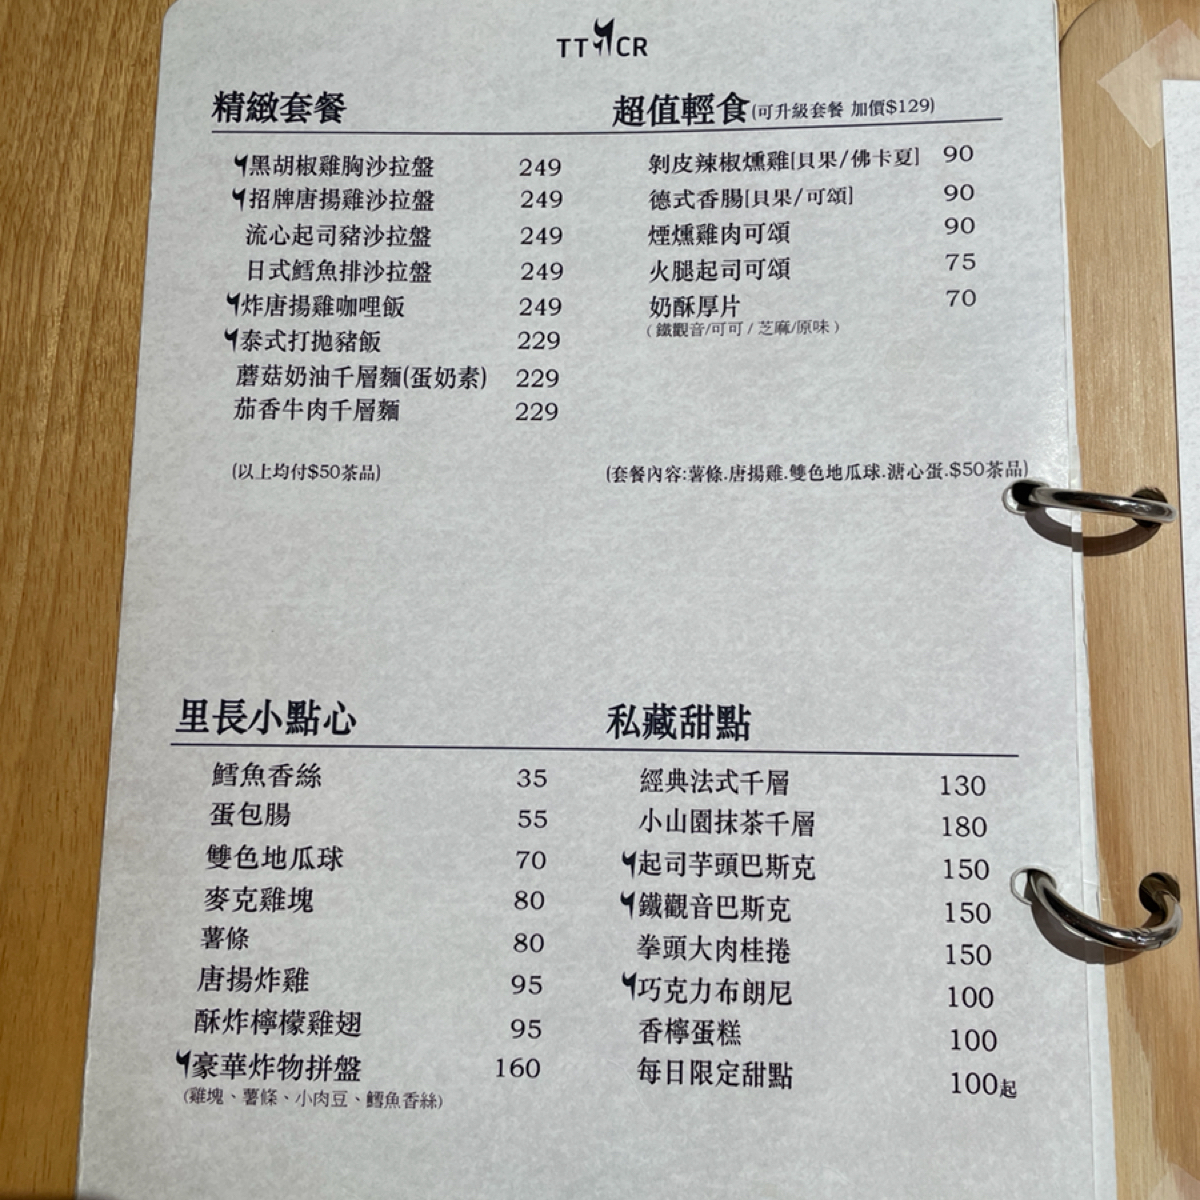 TT CR
精緻套餐
黑胡椒雞胸沙拉盤 249
招牌唐揚雞沙拉盤 249
流心起司豬沙拉盤 249
日式鱈魚排沙拉盤 249
炸唐揚雞咖哩飯 249
泰式打拋豬飯 229
蘑菇奶油千層麵(蛋奶素) 229
茄香牛肉千層麵 229
(以上均付$50茶品)
超值輕食(可升級套餐 加價$129)
剝皮辣椒燻雞[貝果/佛卡夏] 90
德式香腸[貝果/可頌] 90
煙燻雞肉可頌 90
火腿起司可頌 75
奶酥厚片 70
(鐵觀音/可可/芝麻/原味)
(套餐內容:薯條.唐揚雞.雙色地瓜球.溏心蛋.$50茶品)
里長小點心
鱈魚香絲 35
蛋包腸 55
雙色地瓜球 70
麥克雞塊 80
薯條 80
唐揚炸雞 95
酥炸檸檬雞翅 95
豪華炸物拼盤 160
(雞塊、薯條、小肉豆、鱈魚香絲)
私藏甜點
經典法式千層 130
小山園抹茶千層 180
起司芋頭巴斯克 150
鐵觀音巴斯克 150
拳頭大肉桂捲 150
巧克力布朗尼 100
香檸蛋糕 100
每日限定甜點 100起